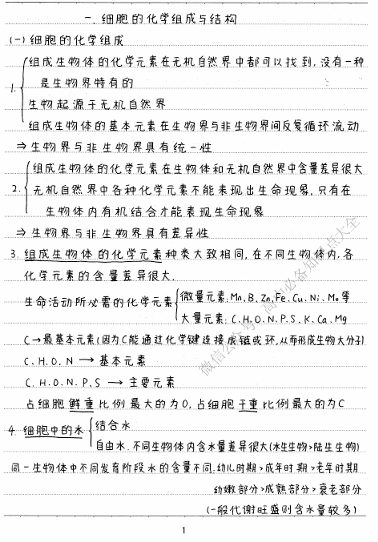 一.细胞的化学组成与结构
(一)细胞的化学组成
组成生物体的化学元素在无机自然界中都可以找到,没有一种
是生物界特有的
1.
生物起源于无机自然界
组成生物体的基本元素在生物界与非生物界间反复循环流动
⇒生物界与非生物界具有统一性
组成生物体的化学元素在生物体和无机自然界中含量差异很大
2. 无机自然界中各种化学元素不能表现出生命现象,只有在
生物体内有机结合才能表现生命现象
⇒生物界与非生物界具有差异性
3. 组成生物体的化学元素种类大致相同,在不同生物体内,各
化学元素的含量差异很大.
生命活动所必需的化学元素 微量元素:Mn、B、Zn、Fe、Cu、Ni、Mo等
大量元素:C、H、O、N、P、S、K、Ca、Mg
C→最基本元素(因为C能通过化学键连接成链或环,从而形成生物大分子)
C、H、O、N → 基本元素
C、H、O、N、P、S → 主要元素
占细胞鲜重比例最大的为O,占细胞干重比例最大的为C
4. 细胞中的水 结合水
自由水.不同生物体内含水量差异很大(水生生物>陆生生物)
同一生物体中不同发育阶段水的含量不同.幼儿时期>成年时期>老年时期
幼嫩部分>成熟部分>衰老部分
(一般代谢旺盛则含水量较多)
1